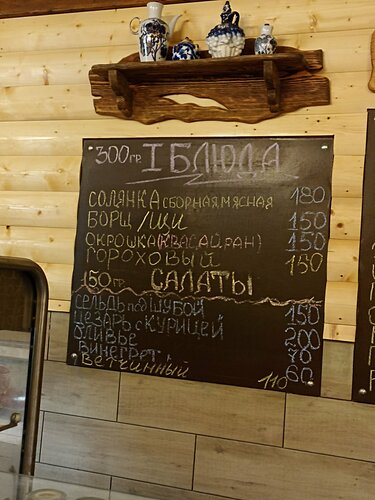 300гр. I БЛЮДА
СОЛЯНКА СБОРНАЯ, МЯСНАЯ 180
БОРЩ / ЩИ 150
ОКРОШКА (КВАС АЙРАН) 150
ГОРОХОВЫЙ 130
150гр. САЛАТЫ
СЕЛЬДЬ ПОД ШУБОЙ 150
ЦЕЗАРЬ С КУРИЦЕЙ 200
ОЛИВЬЕ 70
ВИНЕГРЕТ 60
ВЕТЧИННЫЙ 110